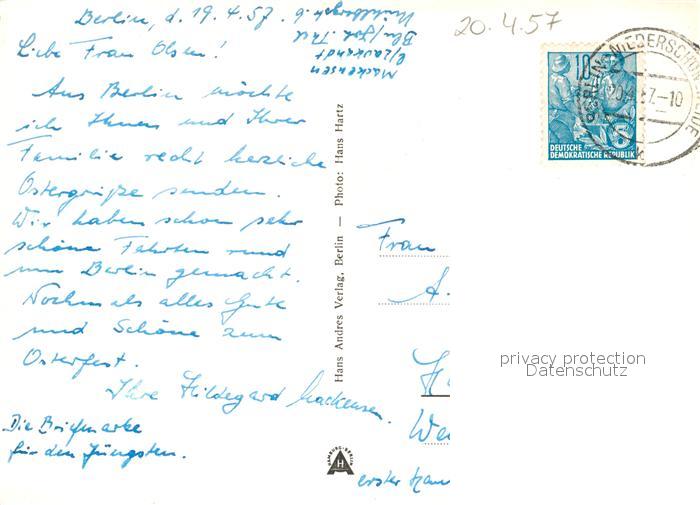 Berlin, d. 19.4.57.
Liebe Frau Olsen!
Aus Berlin möchte
ich Ihnen und Ihrer
Familie recht herzliche
Ostergrüße senden.
Wir haben schon sehr
schöne Fahrten rund
um Berlin gemacht.
Nochmals alles Gute
und Schöne zum
Osterfest.
Ihre Hildegard Mackensen.
Die Briefmarke
für den Jüngsten.
Mackensen
Hans Andres Verlag, Berlin — Photo: Hans Hartz
HAMBURG-BERLIN
H
20.4.57
10
DEUTSCHE
DEMOKRATISCHE REPUBLIK
BERLIN-NIEDERSCHÖNEWEIDE
57.-10
Frau
A.
H
We
erster
privacy protection
Datenschutz